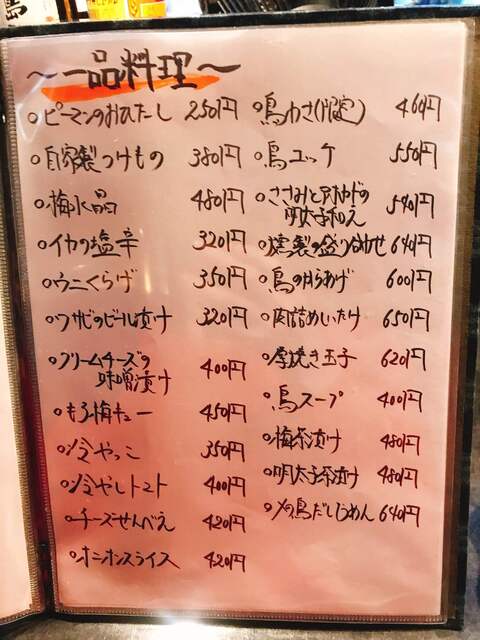 〜一品料理〜
ピーマンのおひたし 250円
自家製つけもの 380円
梅水晶 480円
イカの塩辛 320円
ウニくらげ 350円
ワサビのビール漬け 320円
クリームチーズの
味噌漬け 400円
もろ梅キュー 450円
冷やっこ 350円
冷やしトマト 400円
チーズせんべえ 420円
オニオンスライス 420円
鳥わさ(限定) 460円
鳥ユッケ 550円
ささみとアボカドの
明太子和え 540円
燻製の盛り合わせ 640円
鳥のから揚げ 600円
肉詰めしいたけ 650円
厚焼き玉子 620円
鳥スープ 400円
梅茶漬け 480円
明太子茶漬け 480円
〆の鳥だしそうめん 640円